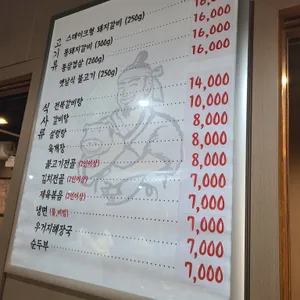 고기류
스테이크형 돼지갈비 (250g) 16,000
통돼지갈비 (300g) 16,000
통삼겹살 (200g) 16,000
옛날식 불고기 (250g)
식사류
전복갈비탕 14,000
갈비탕 10,000
설렁탕 8,000
육개장 8,000
불고기전골 (2인이상) 8,000
김치전골 (2인이상) 7,000
제육볶음 (2인이상) 7,000
냉면 (물,비빔) 7,000
우거지해장국 7,000
순두부 7,000